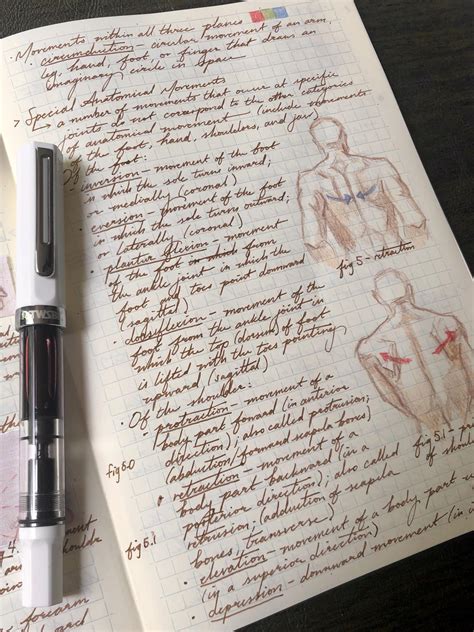 • Movements within all three planes
circumduction – circular movement of an arm,
leg, hand, foot, or finger that draws an
imaginary circle in space
> Special Anatomical Movements
↳ a number of movements that occur at specific
joints & not correspond to the other categories
of anatomical movement – (include movements
of the foot, hand, shoulders, and jaw)
• Of the foot:
• inversion – movement of the foot
in which the sole turns inward;
or medially (coronal)
• eversion – movement of the foot
in which the sole turns outward;
or laterally (coronal)
• plantar flexion – movement
of the foot from
the ankle joint in which the
foot and toes point downward
(sagittal)
• dorsiflexion – movement of the
foot from the ankle joint in
which the top (dorsum) of foot
is lifted with the toes pointing
upward (sagittal)
• Of the shoulder:
• protraction – movement of a
body part forward (in anterior
direction); also called protrusion;
(abduction/forward scapula bones)
• retraction – movement of a
body part backward (in a
posterior direction); also called
retrusion; (adduction of scapula
bones, transverse)
• elevation – movement of a body part
(in a superior direction)
• depression – downward movement (in
fig 5 – retraction
fig 5.1 –
of
fig 5.0
fig 5.1
4.
forearm